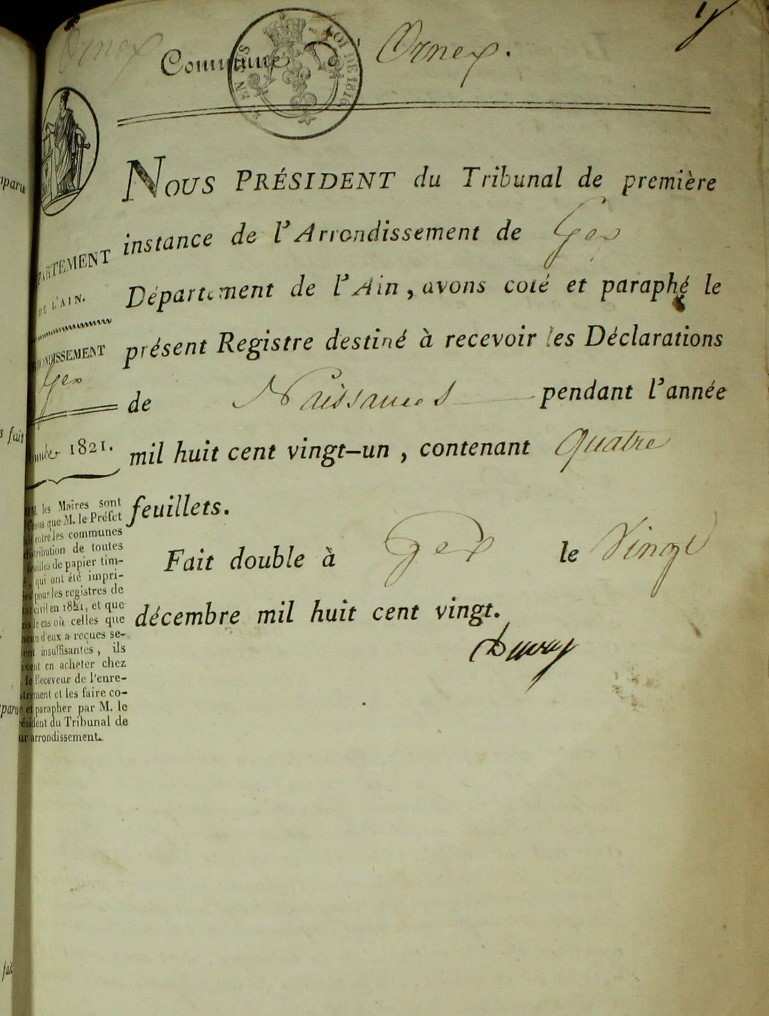 Ornex
Commune d' Ornex.
EN SUS
LOI DE 1816
NOUS PRÉSIDENT du Tribunal de première
instance de l'Arrondissement de Gex
Département de l'Ain, avons coté et paraphé le
présent Registre destiné à recevoir les Déclarations
de Naissances pendant l'année
mil huit cent vingt-un, contenant quatre
feuillets.
Fait double à Gex le Vingt
décembre mil huit cent vingt.
PARTEMENT
DE L'AIN.
ONDISSEMENT
Gex
1821.
les Maires sont
que M. le Préfet
entre les communes
tribution de toutes
de papier tim-
qui ont été impri-
pour les registres de
civil en 1821, et que
le cas où celles que
d'eux a reçues se-
insuffisantes, ils
ent en acheter chez
le Receveur de l'enre-
trement et les faire co-
et parapher par M. le
sident du Tribunal de
arrondissement.
aparu
s fait
paru
fait